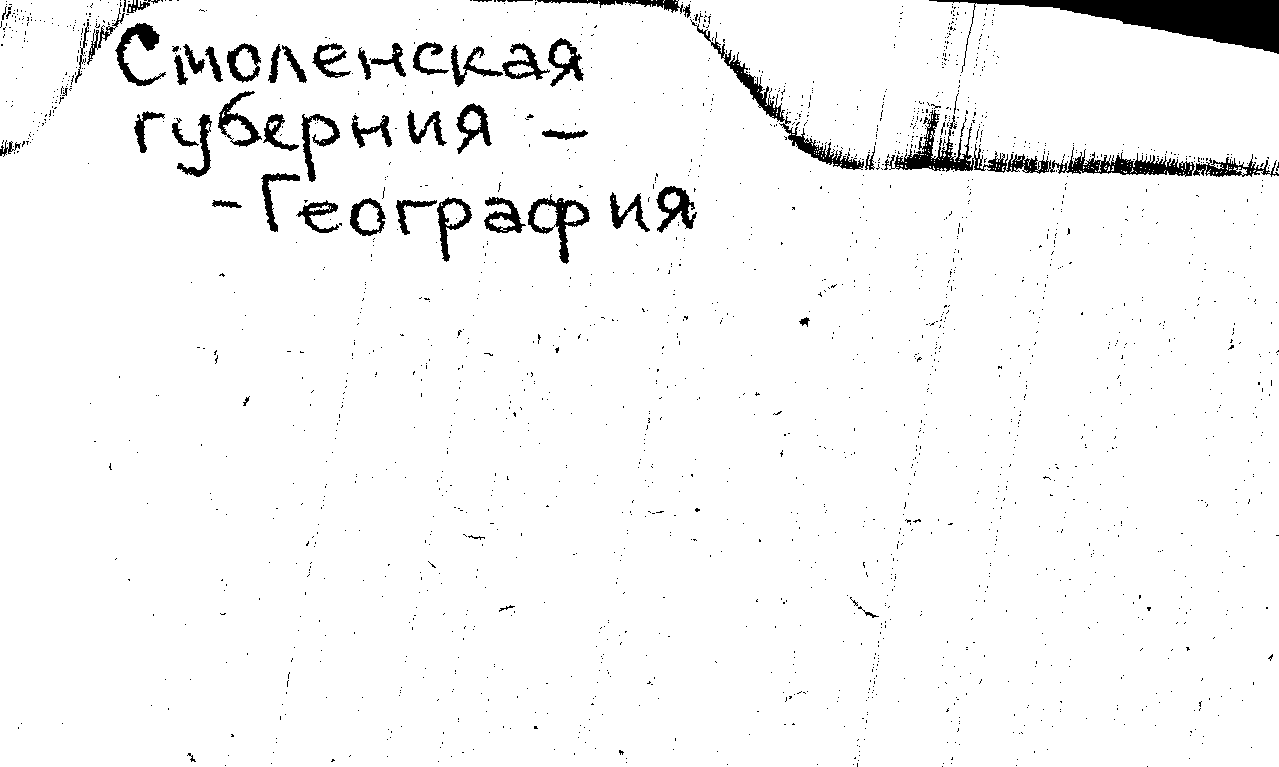 Смоленская
губерния –
- География